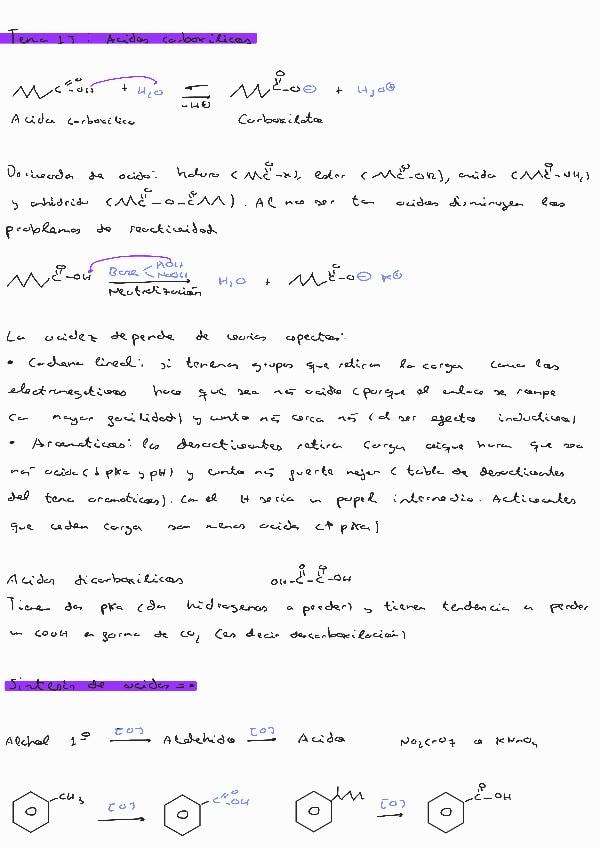 Tema 15: Acidos carboxilicos
C=O OH + H2O ⇌ -H⊕ C=O -O⊖ + H3O⊕
Acido carboxilico Carboxilato
Derivados de acido: haluro (C=O -X), ester (C=O -OR), amida (C=O -NH2)
y anhidrido (C=O -O- C=O). Al no ser tan acidos disminuyen los
problemas de reactividad
C=O -OH Base < KOH NaOH → Neutralización H2O + C=O -O⊖ K⊕
La acidez depende de varios aspectos:
• Cadena lineal: si tenemos grupos que retiran la carga como los
electronegativos hace que sea más acido (porque el enlace se rompe
con mayor facilidad) y cuanto más cerca más (al ser efecto inductivo)
• Aromaticos: los desactivantes retiran carga asique haran que sea
más acido (↓ pKa y pH) y cuanto más fuerte mejor (tabla de desactivantes
del tema aromaticos). Con el H seria un papel intermedio. Activantes
que ceden carga son menos acidos (↑ pKa)
Acidos dicarboxilicos OH-C=O -C=O -OH
Tiene dos pKa (dos hidrogenos a perder) y tienen tendencia a perder
un COOH en forma de CO2 (es decir descarboxilación)
Sintesis de acidos =•
Alchol 1º [O]→ Aldehido [O]→ Acido Na2CrO7 o KMnO4
-CH3 [O]→ C=O OH [O]→ C=O -OH